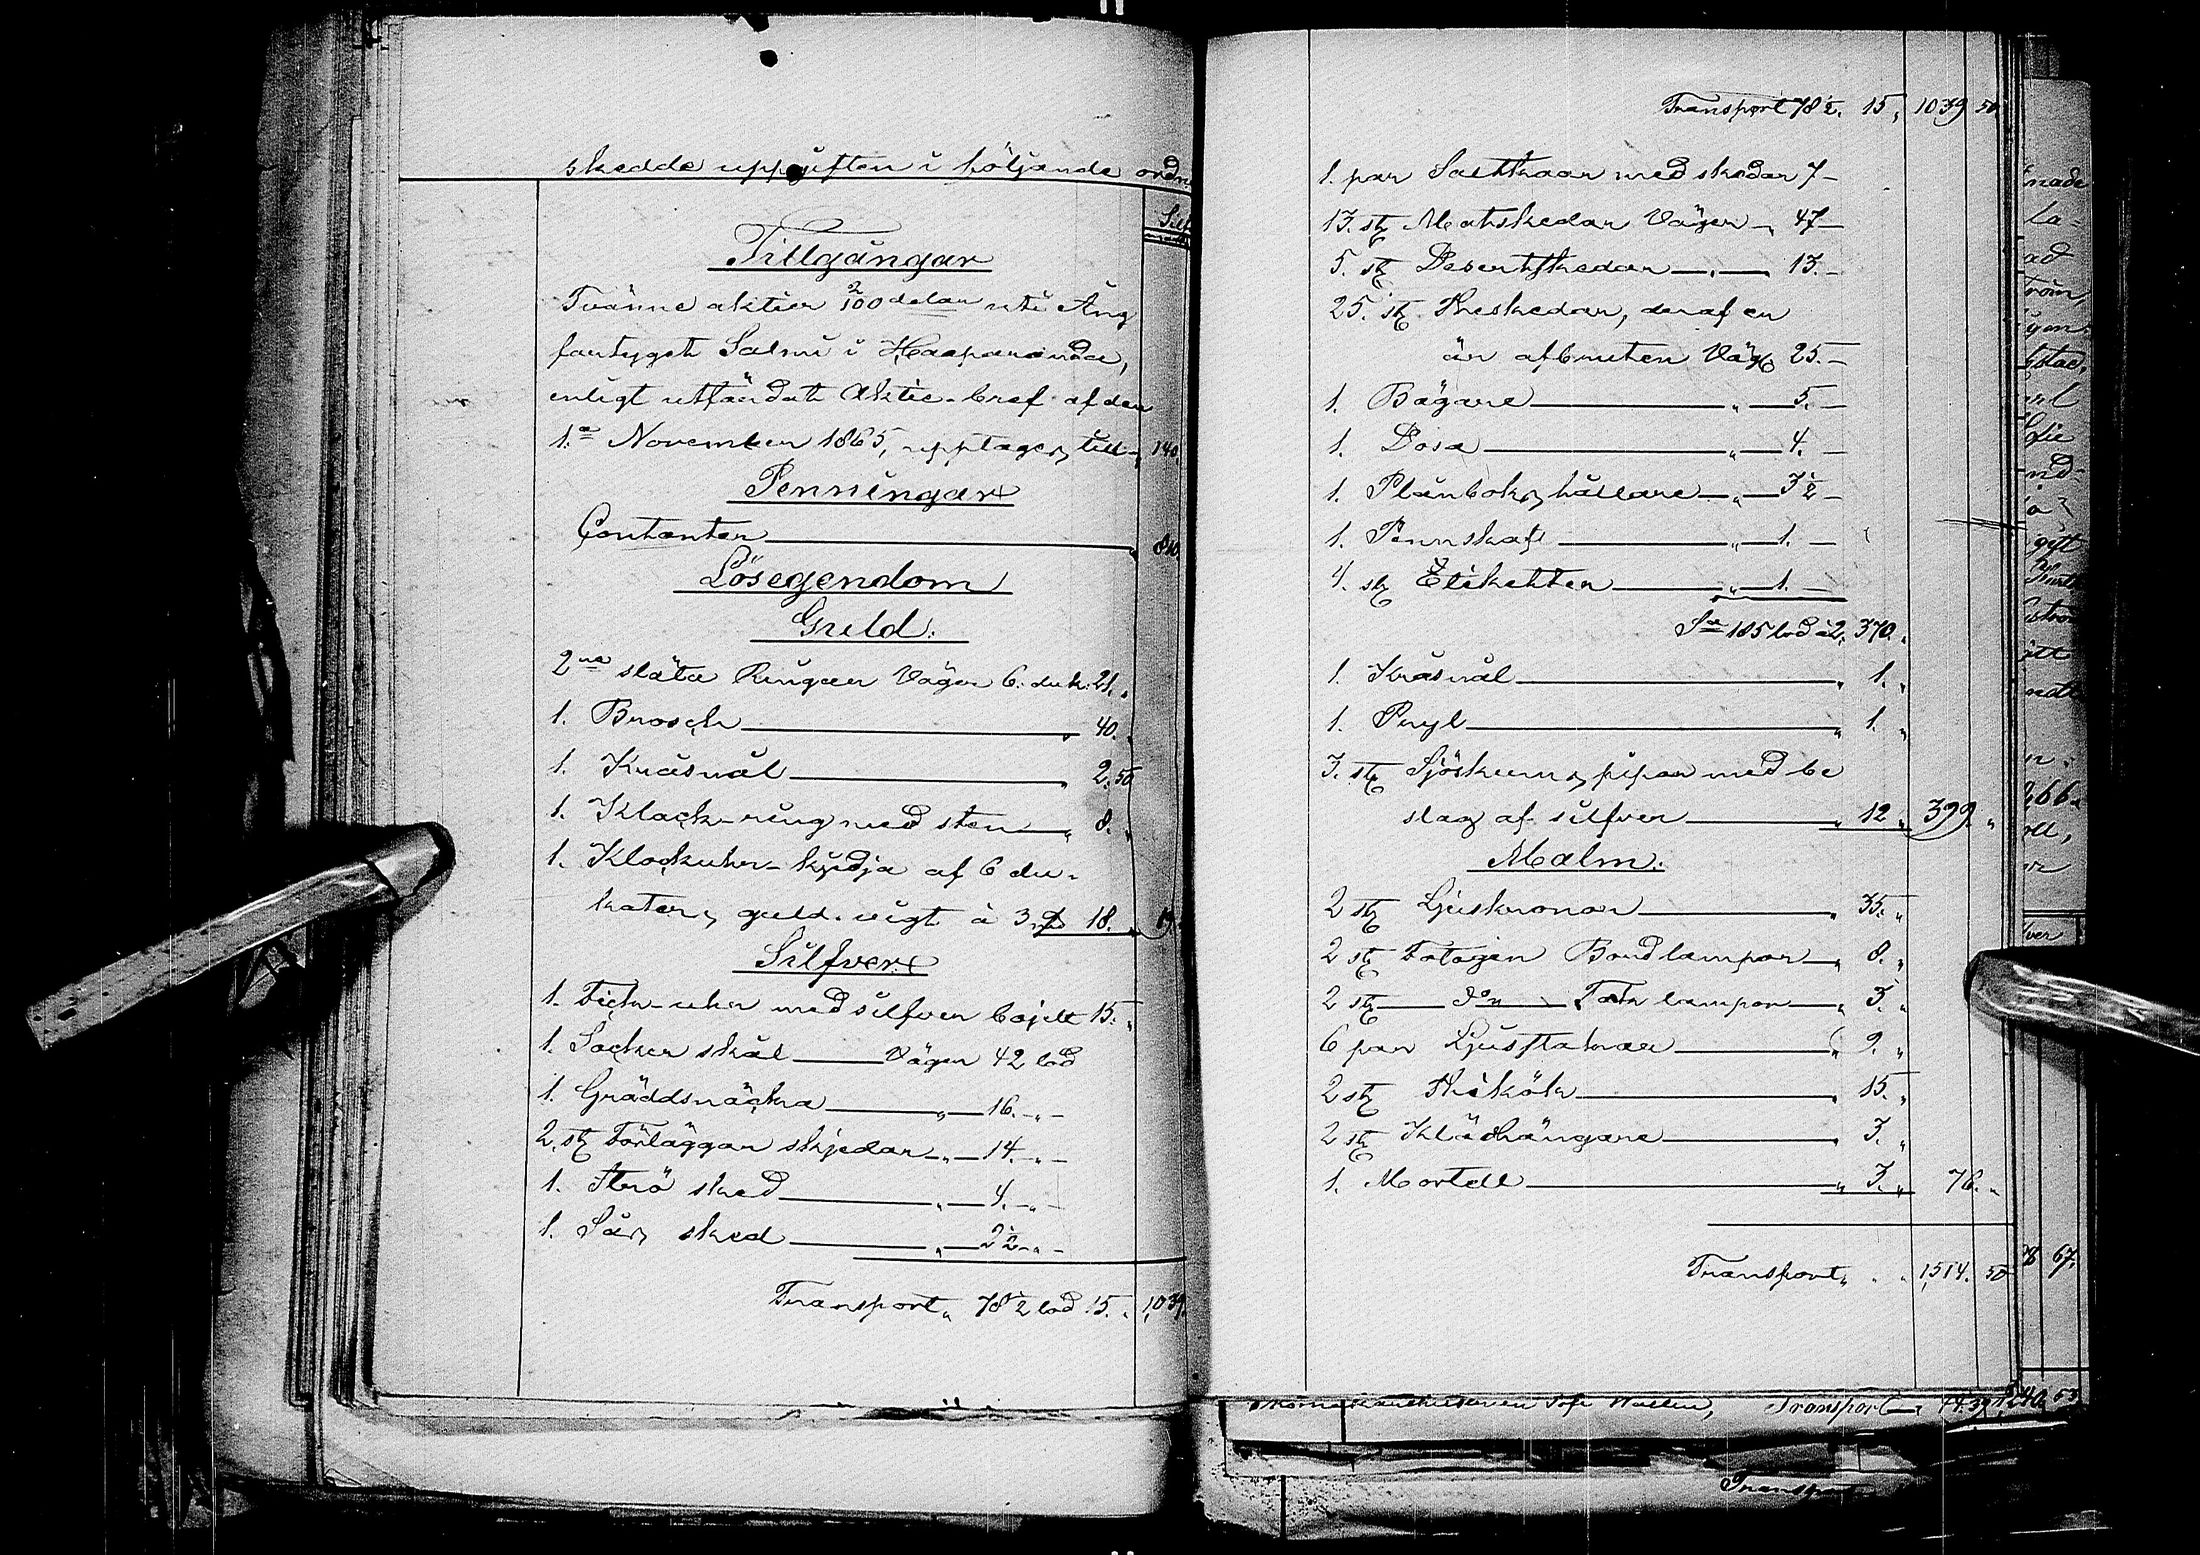 skedde uppgiften i följande ordn
Silf
Tillgångar
Tvänne aktier 2/100 delar uti Ång
fartyget Salmi i Haaparanda,
enligt utfärdat Aktie-bref af den
1a November 1865, upptages till " 140.
Penningar
Contanter " 810
Lösegendom
Guld.
2ne släta Ringar Väger 6. duk. 21. "
1. Brosch " 40. "
1. Kråsnål " 2. 50
1. Klack-ring med sten " 8. "
1. Klockuhr-kjedja af 6 du-
kater, guld. vigt à 3 18. "
Silfver
1. Fick-uhr med silfver bojett 15. "
1. Socker skål Väger 42 lod
1. Gräddsnäcka " 16. " -
2. st Förläggar skjedar " 14. " -
1. Strö sked " 4. " -
1. Sås sked " 2½ " -
Transport " 78½ lod 15. " 1,039.
Transport 78½. 15, 1039 50
1. par Saltkaar med skedar 7 -
13. st Matskedar Väger " 47 -
5. st Desertskedar " 13. -
25. st Theskedar, deraf en
är afbruten Väg 25. -
1. Bägare " 5. -
1. Dosa " 4. -
1. Plånboks hållare " 3½ -
1. Pennskaft " 1. -
4. st Etiketter " 1. -
Sa 185 lod à 2, 370. "
1. Kråsnål " 1. "
1. Pryl " 1. "
3. st Sjöskums pipor med be
slag af silfver " 12 " 399. "
Malm.
2 st Ljuskronor " 35. "
2 st Fotogén Bord lampor " 8. "
2 st do Tak lampor " 3. "
6 par Ljusstakar " 9. "
2 st Thekök " 15. "
2 st Klädhängare " 3. "
1. Mortell " 3. " 76. "
Transport " " " 1,514. 50
67.
Transport
Transport